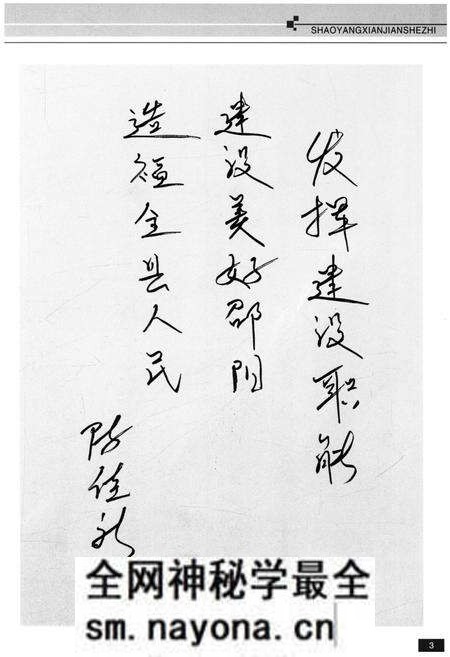 SHAOYANGXIANJIANSHEZHI
发挥建设职能
建设美好邵阳
造福全县人民
陈佳新
全网神秘学最全
sm.nayona.cn
3